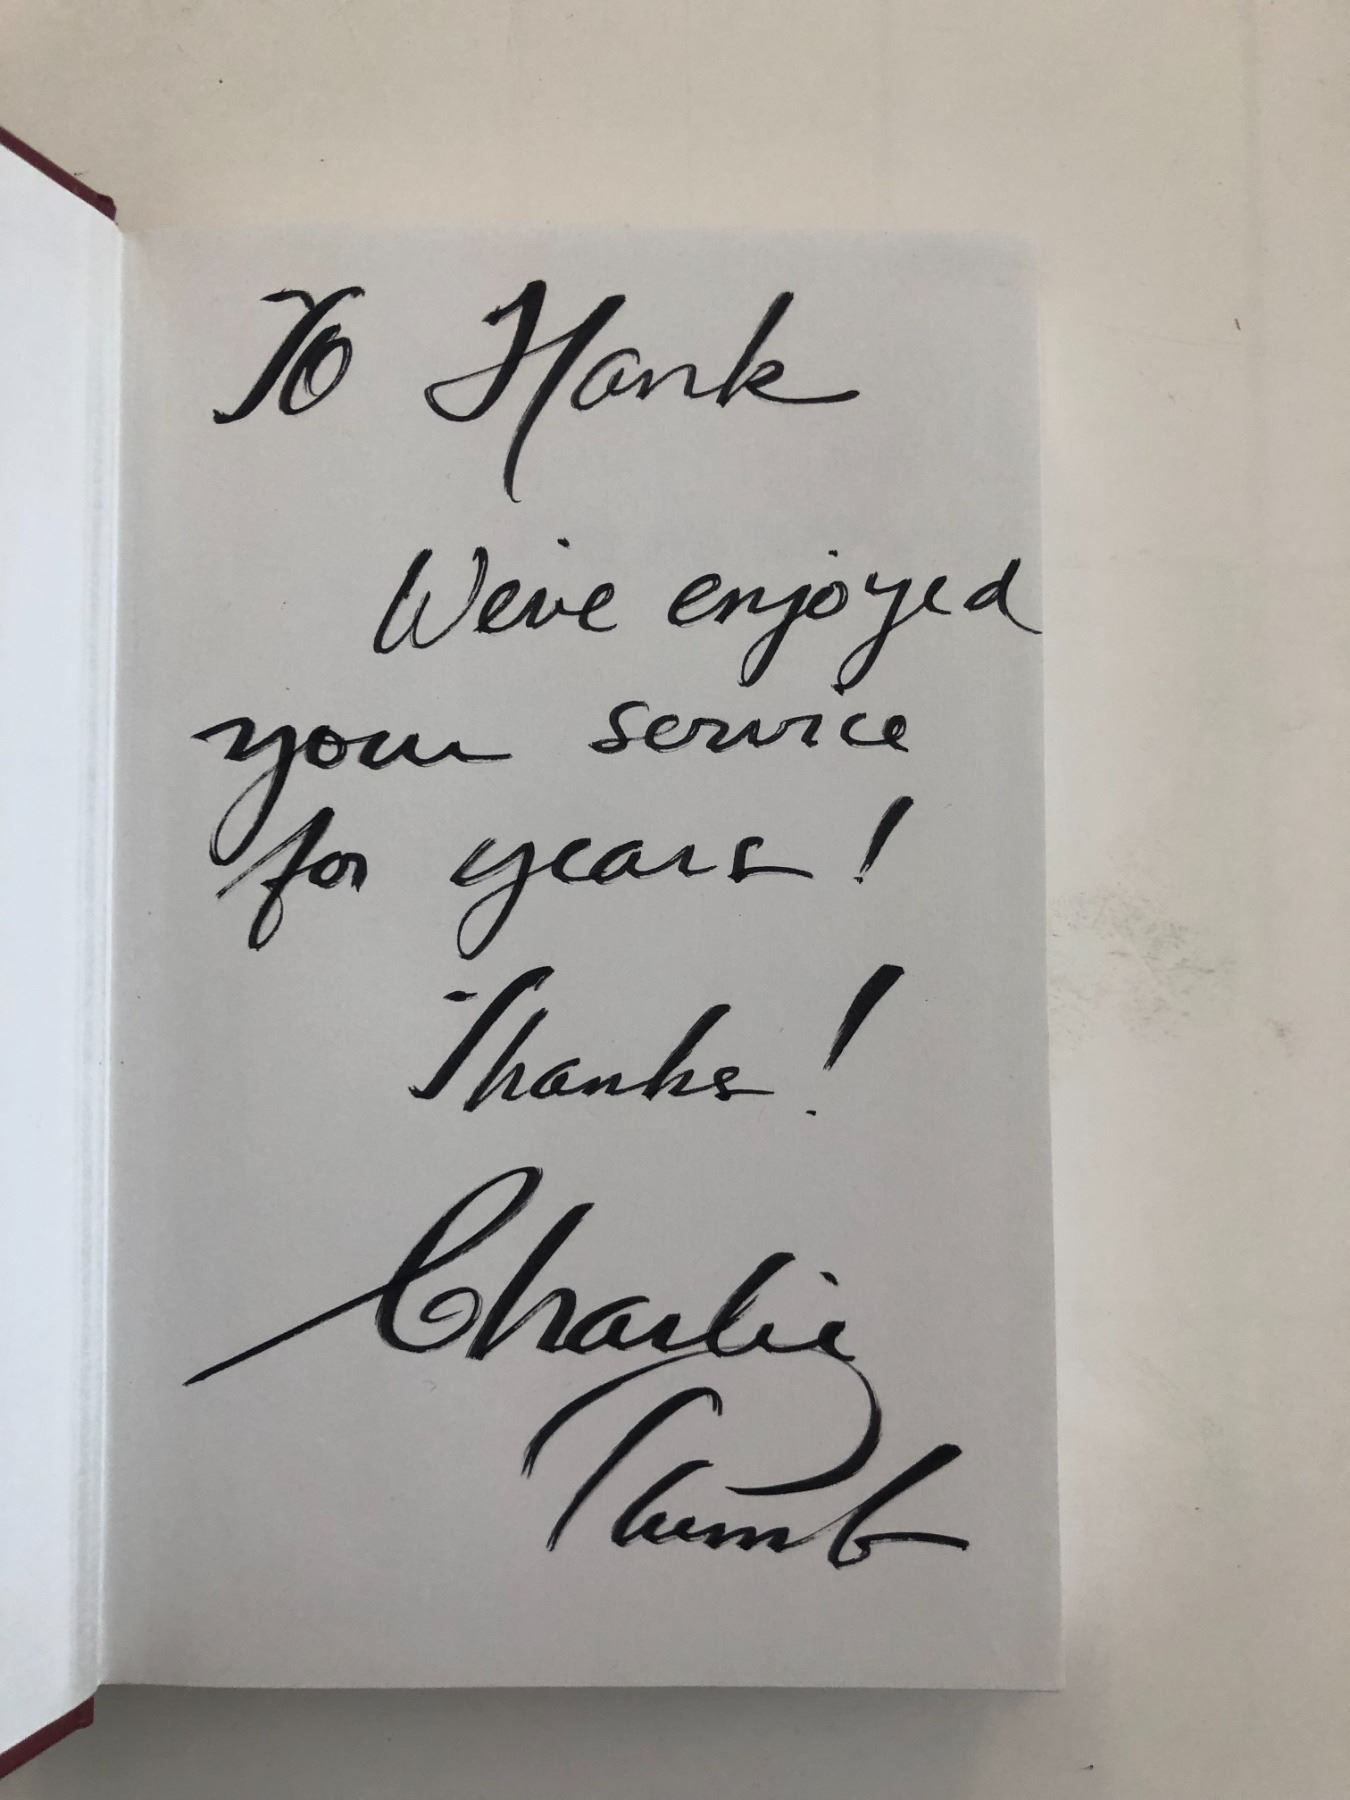 To Hank
We've enjoyed
your service
for years!
Thanks!
Charlie
Thumb